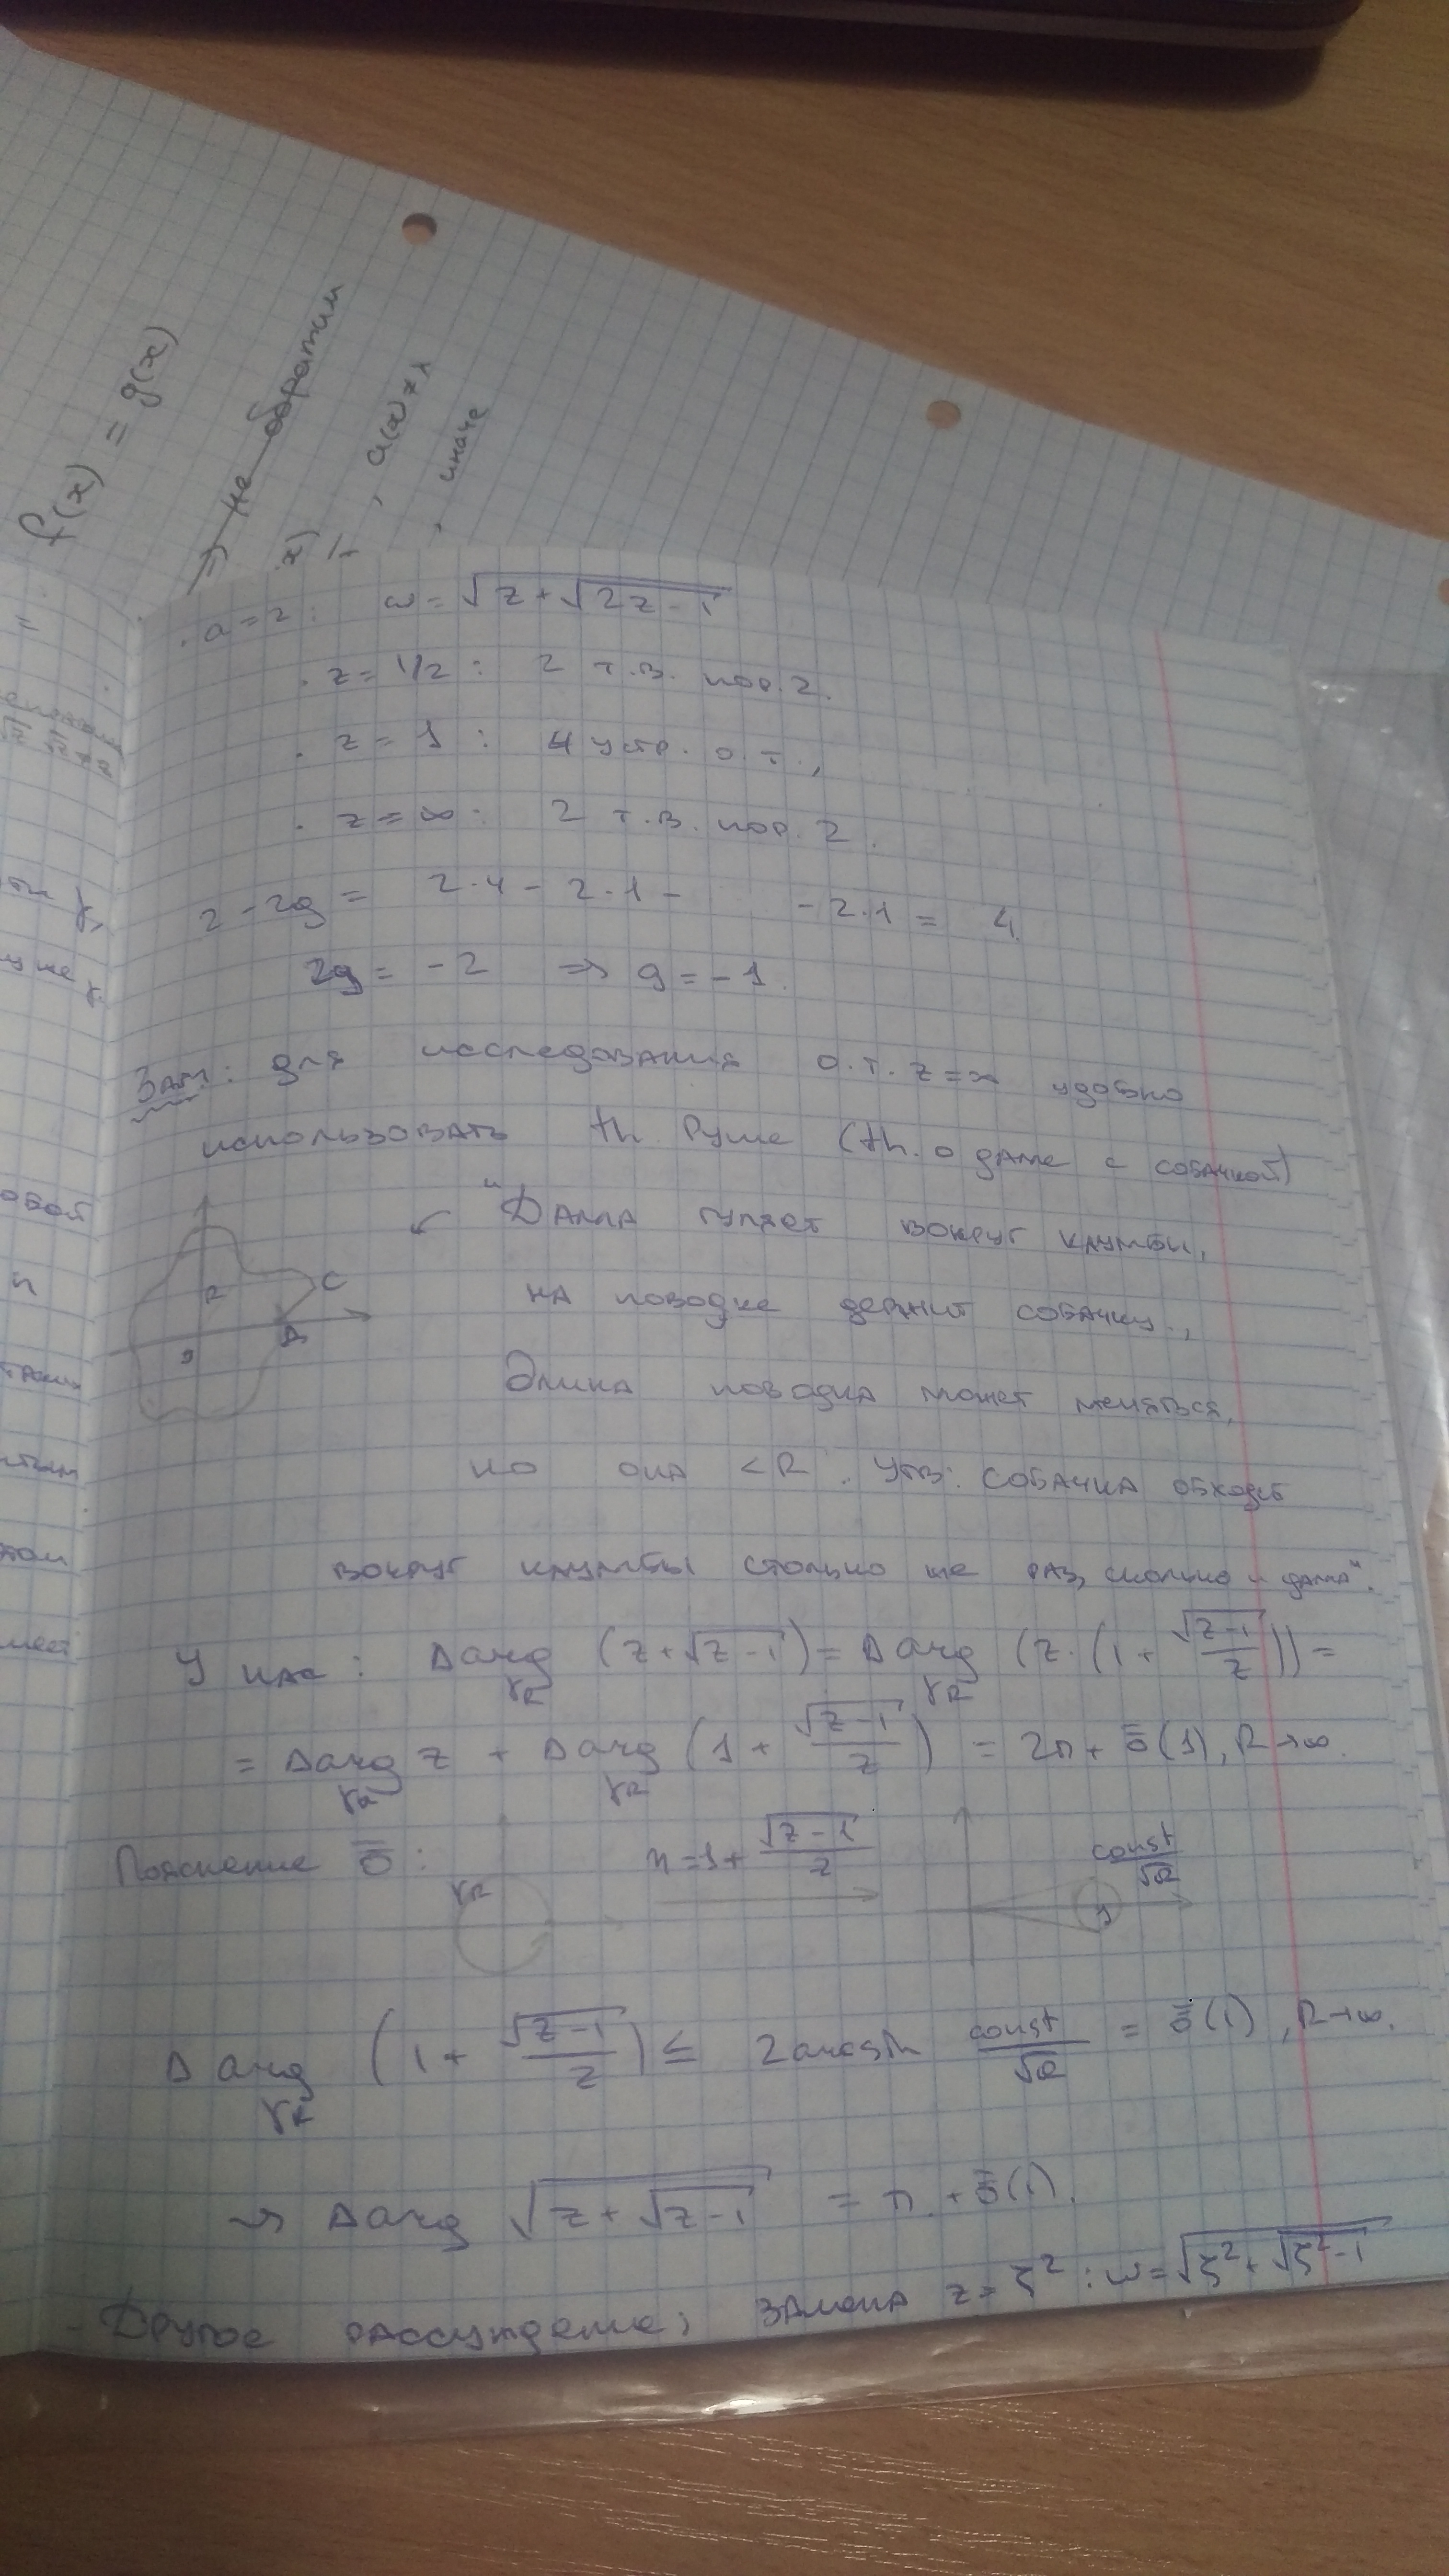 f(x) = g(x)
⇒ не обратим
x)
, a(x) ≠ 1
, иначе
. a=2: w = √(z+√(2z-1))
. z = 1/2 : 2 т.в. пор. 2.
. z = 1 : 4 устр. о.т.,
. z = ∞ : 2 т.в. пор. 2.
2-2g = 2·4 - 2·1 - - 2·1 = 4.
2g = -2 ⇒ g = -1.
Зам: для исследования о.т. z=∞ удобно
использовать th. Руше (th. о даме с собачкой)
"Дама гуляет вокруг клумбы,
на поводке держит собачку.,
Длина поводка может меняться,
но она < R. Утв: собачка обходит
вокруг клумбы столько же раз, сколько и дама".
R C
0 Д
У нас: Δarg_γR (z+√(z-1)) = Δarg_γR (z·(1+√(z-1)/z)) =
= Δarg_γR z + Δarg_γR (1+√(z-1)/z) = 2π + ō(1), R→∞.
Пояснение ō: γR η=1+√(z-1)/z const/√R 1
Δarg_γR (1+√(z-1)/z) ≤ 2arcsin const/√R = ō(1), R→∞.
⇒ Δarg √(z+√(z-1)) = π + ō(1).
- Другое рассуждение; замена z = ζ² : w = √(ζ²+√(ζ²-1))
=
овой
п
том